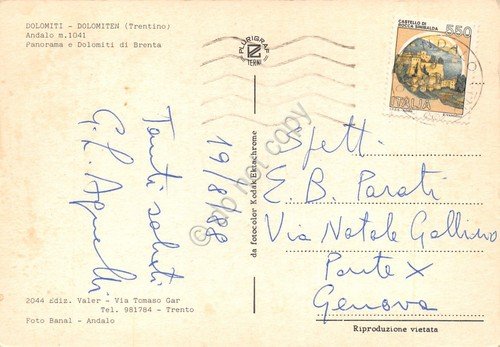 DOLOMITI - DOLOMITEN (Trentino)
Andalo m.1041
Panorama e Dolomiti di Brenta
PLURIGRAF
TERNI
CASTELLO DI
ROCCA SINIBALDA
550
ITALIA
Tanti saluti
G. L. Agnelli
19/8/88
da fotocolor Kodak Ektachrome
Spett.
E. B. Parati
Via Natale Gallino
Ponte X
Genova
2044 Ediz. Valer - Via Tomaso Gar
Tel. 981784 - Trento
Foto Banal - Andalo
Riproduzione vietata
do not copy